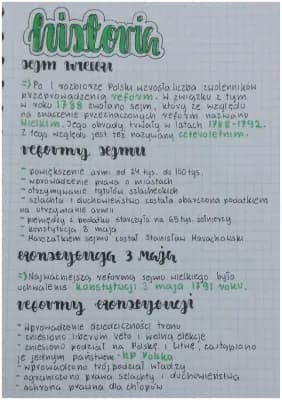 historia
sejm wielki
=> Po I rozbiorze Polski wzrosła liczba zwolenników
przeprowadzenia reform. W związku z tym
w roku 1788 zwołano sejm, który ze względu
na znaczenie przeznaczonych reform nazwano
wielkim. Jego obrady trwały w latach 1788-1792.
Z tego względu jest też nazywany czteroletnim.
reformy sejmu
- powiększenie armi od 24 tys. do 100 tys.
- wprowadzenie prawa o miastach
- otrzymywanie tytułów szlacheckich
- szlachta i duchowieństwo została obarczona podatkiem
na utrzymanie armii
- pieniędzy z podatku starczyło na 65 tys. żołnierzy
- konstytucja 3 maja
- Marszałkiem sejmu został Stanisław
konstytucja 3 maja
=> Najważniejszą reformą sejmu wielkiego było
uchwalenie konstytucji 3 maja 1791 roku.
reformy konstytucji
- Wprowadzenie dziedziczności tronu
- zniesiono liberum veto i wolną elekcje
- zniesiono podział na Polskę i Litwę, zastąpiono
je jednym państwem - RP Polską
- wprowadzono trójpodział władzy
- ograniczono prawa szlachty i duchowieństwa
- ochrona prawna dla chłopów